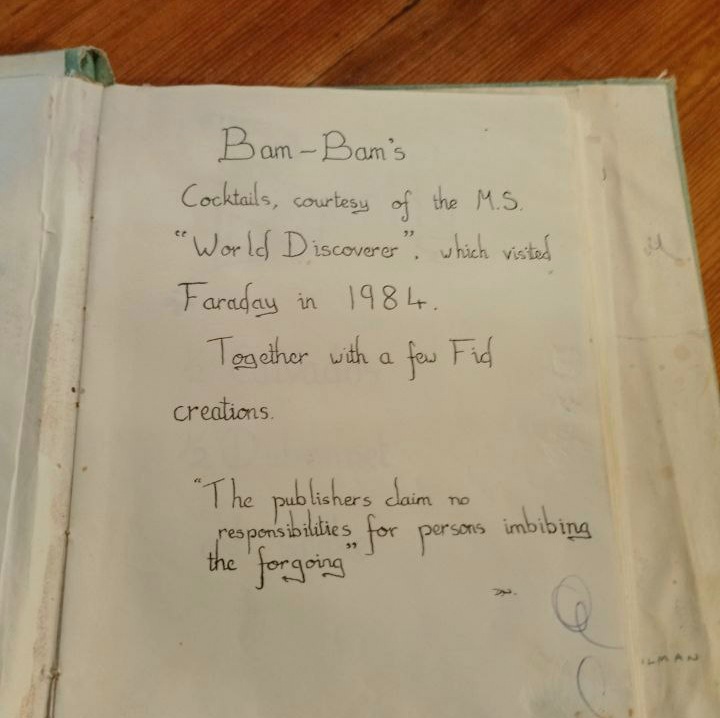 Bam-Bam's
Cocktails, courtesy of the M.S.
"World Discoverer". which visited
Faraday in 1984.
Together with a few Fid
creations.
"The publishers claim no
responsibilities for persons imbibing
the forgoing"
ILMAN